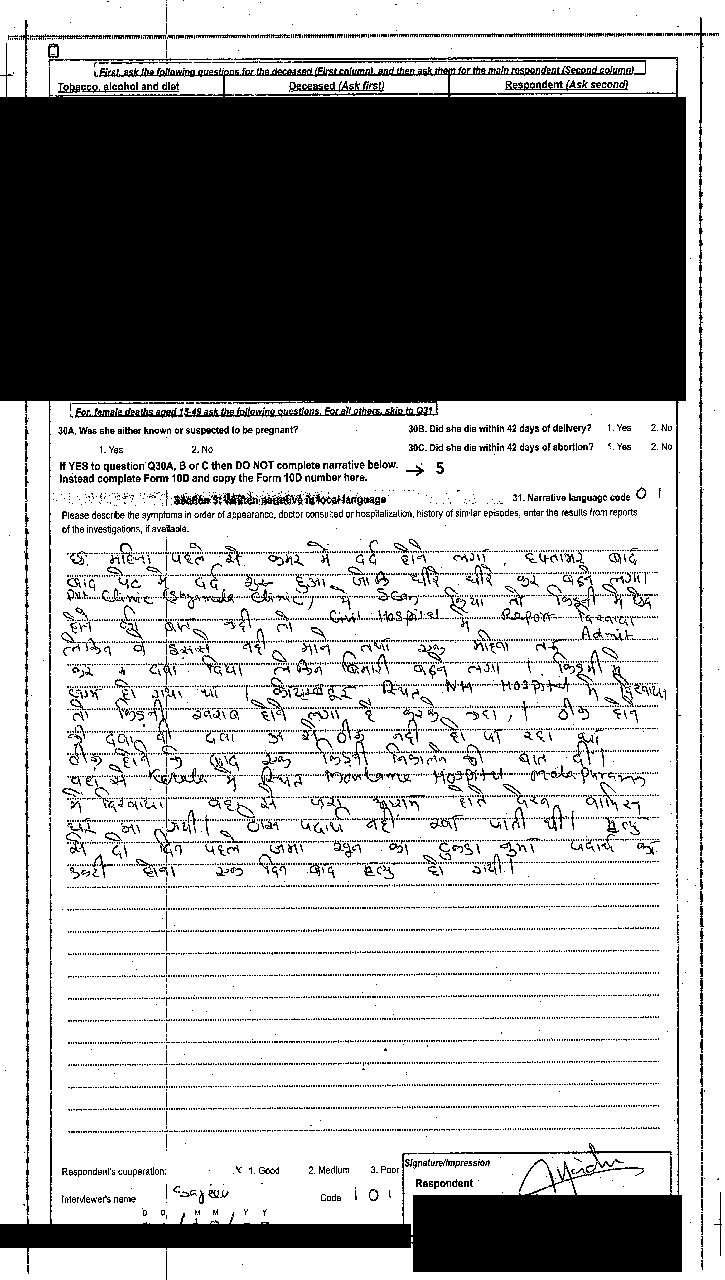 First, ask the following questions for the deceased (First column), and then ask them for the main respondent (Second column)
Tobacco, alcohol and diet Deceased (Ask first) Respondent (Ask second)
For female deaths aged 15-49 ask the following questions. For all others, skip to Q31
30A. Was she either known or suspected to be pregnant? 30B. Did she die within 42 days of delivery? 1. Yes 2. No
1. Yes 2. No 30C. Did she die within 42 days of abortion? 1. Yes 2. No
If YES to question Q30A, B or C then DO NOT complete narrative below. → 5
Instead complete Form 10D and copy the Form 10D number here.
Section 5: Written narrative in local language 31. Narrative language code 0 1
Please describe the symptoms in order of appearance, doctor consulted or hospitalization, history of similar episodes, enter the results from reports
of the investigations, if available.
छः महिना पहले से कमर में दर्द होने लगा, हफ्ताभर बाद
बाद पेट में दर्द शुरू हुआ जोकि धीरे धीरे कर बढ़ने लगा।
Pvt. Clinic (Clinic) में Scan किया तो किडनी में छेद
होने की बात कही तो Civil Hospital में Report दिखाया
लेकिन वे इससे नहीं माने तथा एक महिना तक Admit
कर दवा दिया लेकिन बिमारी बढ़ने लगा। किडनी
हो गया था। स्थित Hospital में दिखाया
तो किडनी खराब होने लगा है करके कहा,। ठीक होने
की दवा दी दवा से ठीक नहीं हो पा रहा था
ठीक होने कि बाद एक किडनी निकालने की बात की।
वहां से Kerala में स्थित Hospital Malapuram
में दिखाया वहां से होते देख वापिस
घर आ गयी। ठोस पदार्थ नहीं खा पाती थी। मृत्यु
से दो दिन पहले जमा खून का टुकडा नुमा पदार्थ का
उल्टी होना एक दिन बाद मृत्यु हो गयी।
Respondent's cooperation: 1. Good 2. Medium 3. Poor
Signature/Impression
Respondent
Interviewer's name Code 1 0 1
D D / M M / Y Y